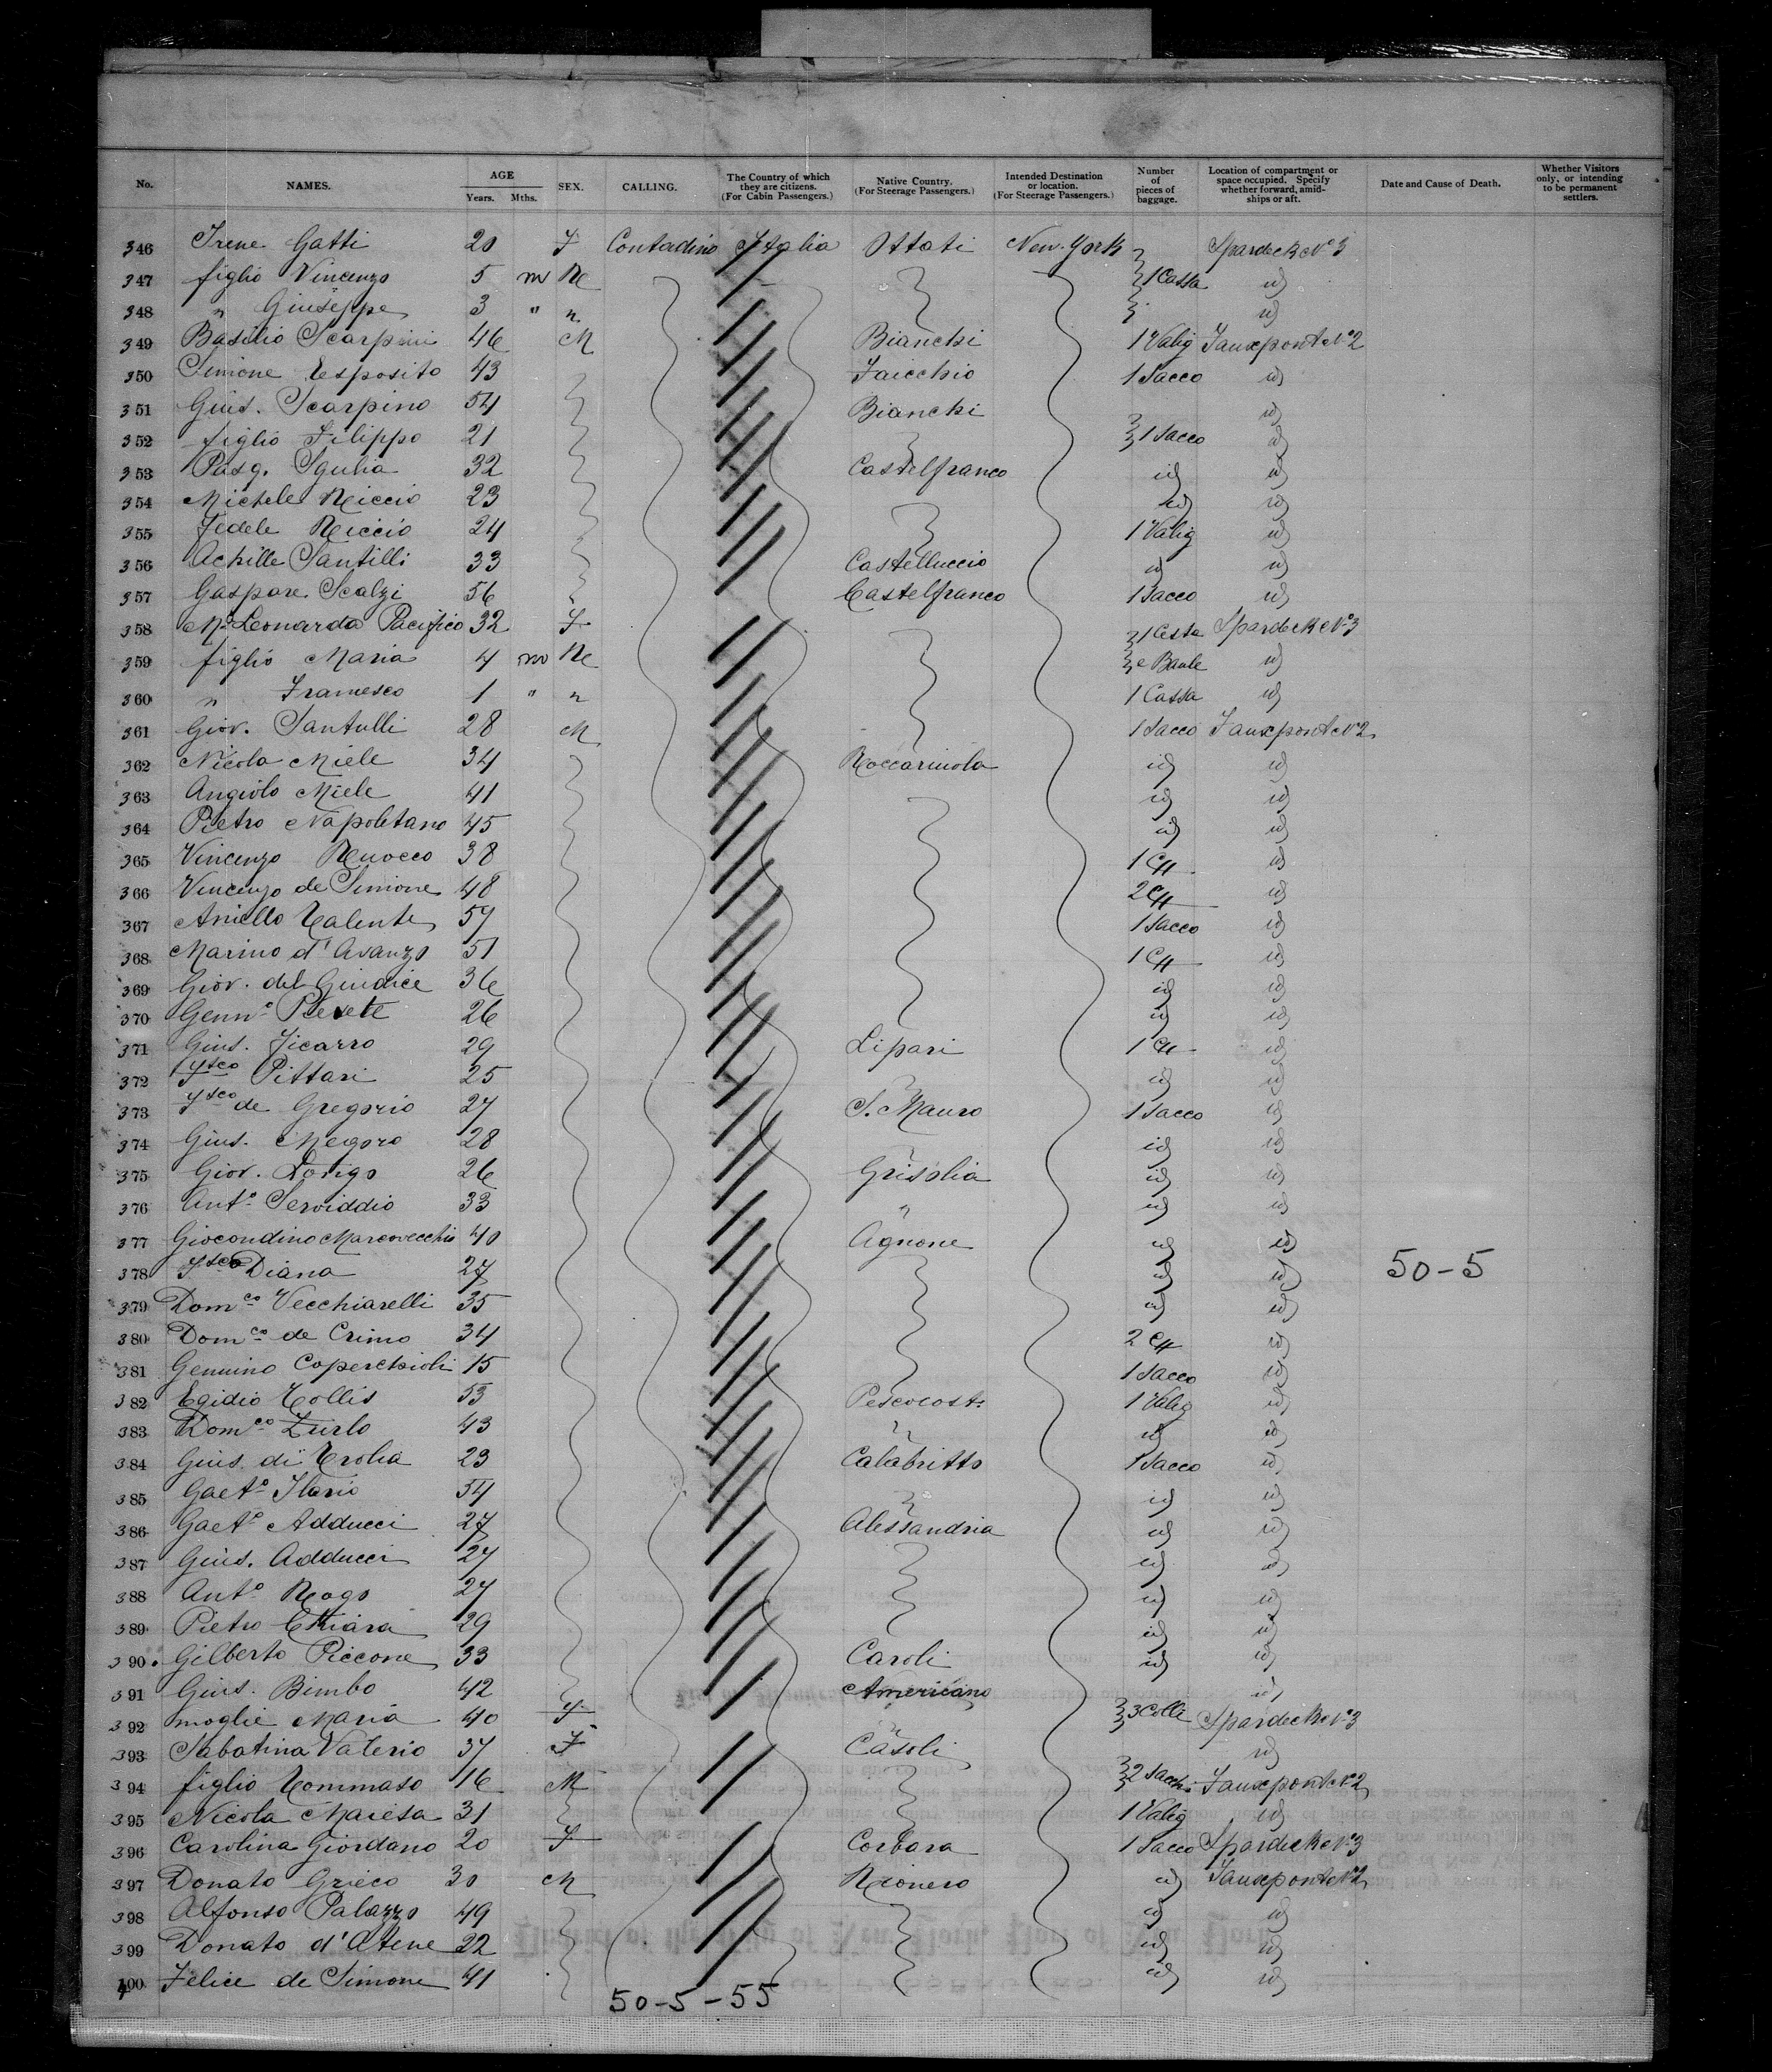 No. NAMES. AGE Years. Mths. SEX. CALLING. The Country of which they are citizens. (For Cabin Passengers.) Native Country. (For Steerage Passengers.) Intended Destination or location. (For Steerage Passengers.) Number of pieces of baggage. Location of compartment or space occupied. Specify whether forward, amidships or aft. Date and Cause of Death. Whether Visitors only, or intending to be permanent settlers.
346 Irene Gatti 20 F Contadino Italia Ottati New-York Spardeck No 3
347 figlio Vincenzo 5 m 1 Cassa id
348 " Giuseppe 3 " " id
349 Basilio Scarpini 46 M Bianchi 1 Valig No 2
350 Simone Esposito 43 Faicchio 1 Sacco id
351 Gius. Scarpino 54 Bianchi id
352 figlio Filippo 21 1 Sacco id
353 Pasq. Sgulia 32 Castelfranco id id
354 Michele Riccio 23 id id
355 Fedele Riccio 24 1 Valig id
356 Achille Santilli 33 Castelluccio id id
357 Gaspare Scalzi 56 Castelfranco 1 Sacco id
358 Ma Leonarda Pacifico 32 F 1 Cesta Spardeck No 3
359 figlio Maria 4 m e Baule id
360 " Francesco 1 " " 1 Cassa id
361 Giov. Santulli 28 M 1 Sacco No 2
362 Nicola Miele 34 Roccarinola id id
363 Angiolo Miele 41 id id
364 Pietro Napoletano 45 id id
365 Vincenzo Ruocco 38 1 id
366 Vincenzo de Simone 48 2 id
367 Aniello Talente 57 1 Sacco id
368 Marino d'Avanzo 51 1 id
369 Giov. del Giudice 36 id id
370 Genno 26 id id
371 Gius. Ficarro 29 Lipari 1 id
372 Fsco Pittari 25 id id
373 Fsco de Gregorio 27 S. Mauro 1 Sacco id
374 Gius. Megoro 28 id id
375 Giov. Longo 26 Grisolia id id
376 Anto Serviddio 33 " id id
377 Giocondino Marcovecchio 40 Agnone id id
378 Fsco Diana 27 id id 50-5
379 Domco Vecchiarelli 35 id id
380 Domco de Crimo 34 2 id
381 Genuino Coperchioli 15 1 Sacco id
382 Egidio Collis 53 Pescocost. 1 Valig id
383 Domco Zurlo 43 id id
384 Gius. di Trolia 23 Calabritto 1 Sacco id
385 Gaeto Ilario 54 id id
386 Gaeto Adducci 27 Alessandria id id
387 Gius. Adducci 27 id id
388 Anto Rago 27 id id
389 Pietro Chiara 29 id id
390 Gilberto Piccone 33 Caroli id id
391 Gius. Bimbo 42 Americano id
392 moglie Maria 40 F 3 Colli Spardeck No 3
393 Sabatina Valerio 37 F Casoli id
394 figlio Tommaso 16 M 2 Sacchi No 2
395 Nicola Maiesa 31 1 Valig id
396 Carolina Giordano 20 F Corbara 1 Sacco Spardeck No 3
397 Donato Grieco 30 M Rionero id No 2
398 Alfonso Palazzo 49 id id
399 Donato d'Atene 22 id id
400 Felice de Simone 41 id id
50-5-55